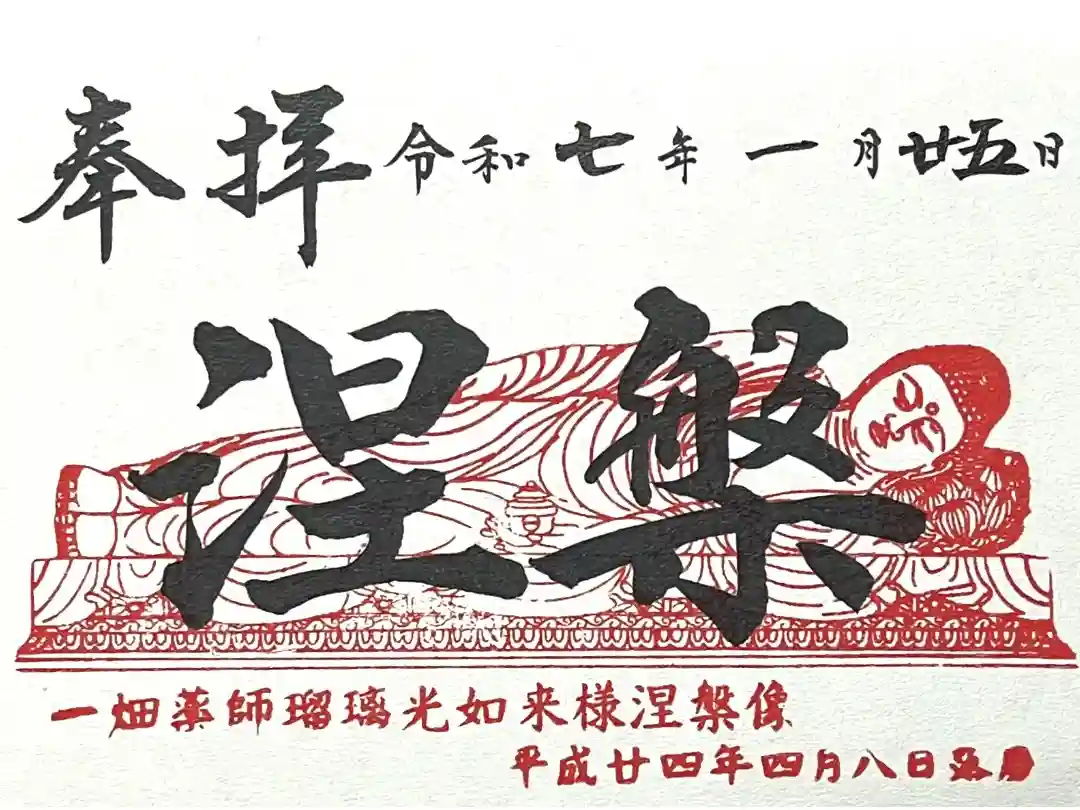 奉拝 令和七年一月廿五日
涅槃
一畑薬師瑠璃光如来様涅槃像
平成廿四年四月八日